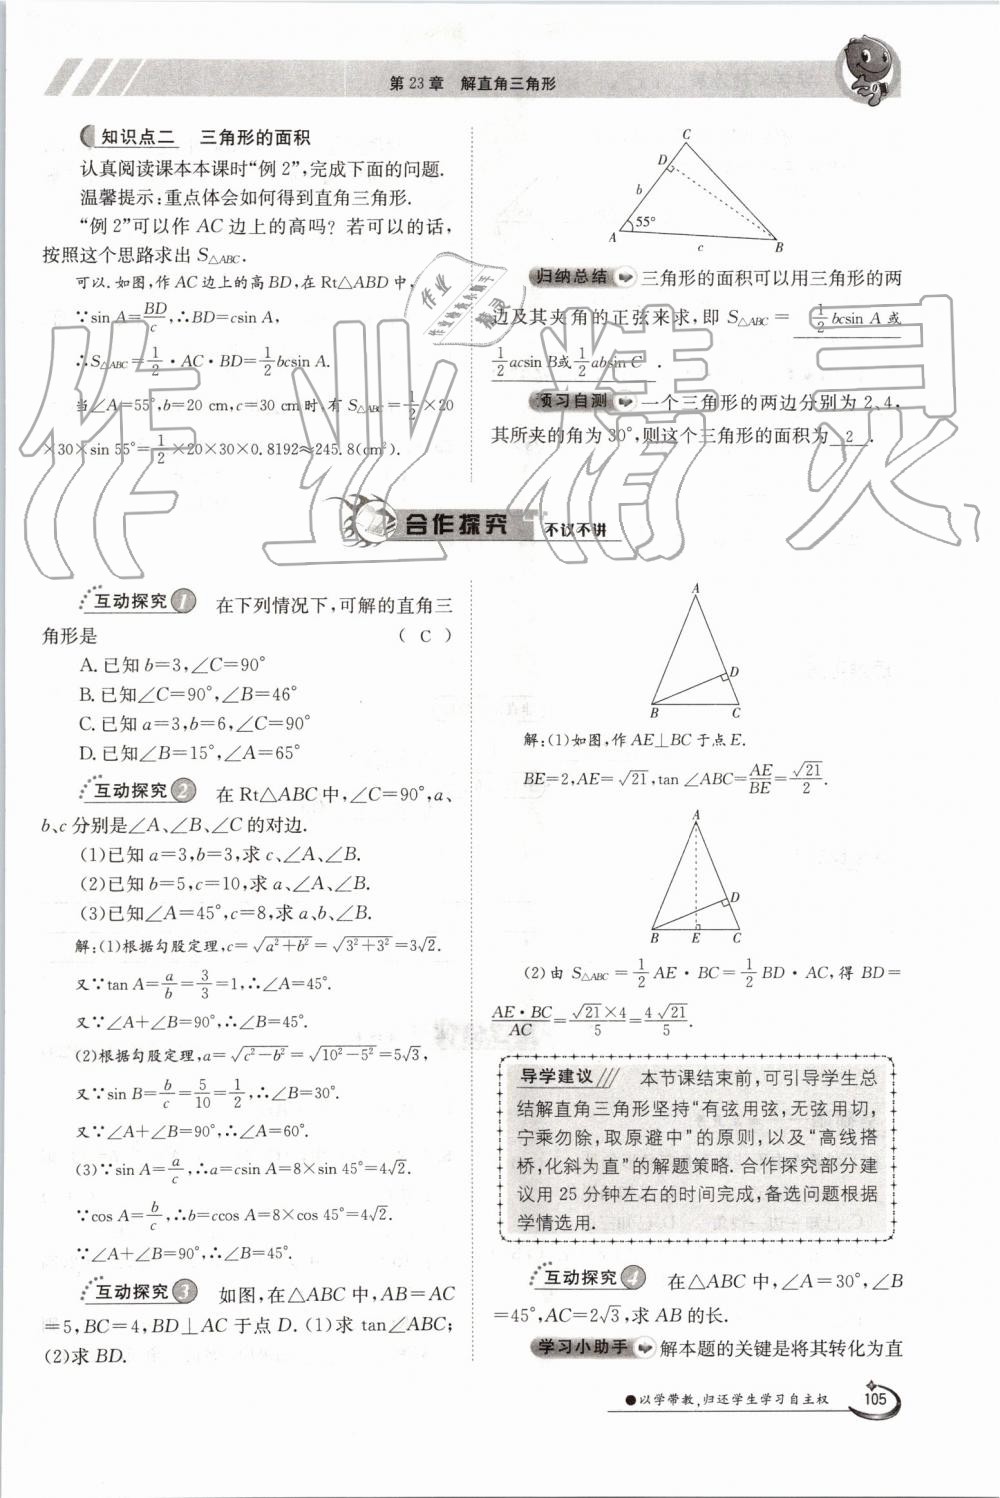 第 23 章　解直角三角形
知识点二　三角形的面积
认真阅读课本本课时“例 2”,完成下面的问题.
温馨提示:重点体会如何得到直角三角形.
“例 2”可以作 AC 边上的高吗? 若可以的话,
按照这个思路求出 S△ABC.
可以.如图,作 AC 边上的高 BD,在 Rt△ABD 中,
∵sin A=BD/c,∴BD=csin A,
∴S△ABC=1/2·AC·BD=1/2bcsin A.
当∠A=55°,b=20 cm,c=30 cm时,有 S△ABC=1/2×20
×30×sin 55°=1/2×20×30×0.8192≈245.8(cm²).
C
D
b
55°
A
c
B
归纳总结　三角形的面积可以用三角形的两
边及其夹角的正弦来求,即 S△ABC= 1/2bcsin A 或
1/2acsin B或1/2absin C .
预习自测　一个三角形的两边分别为 2、4,
其所夹的角为 30°,则这个三角形的面积为 2 .
作业
作业检查小助手
精灵
作业精灵
合作探究　不议不讲
互动探究 1　在下列情况下,可解的直角三
角形是　( C )
A. 已知 b=3,∠C=90°
B. 已知∠C=90°,∠B=46°
C. 已知 a=3,b=6,∠C=90°
D. 已知∠B=15°,∠A=65°
互动探究 2　在 Rt△ABC 中,∠C=90°,a、
b、c 分别是∠A、∠B、∠C 的对边.
(1)已知 a=3,b=3,求 c、∠A、∠B.
(2)已知 b=5,c=10,求 a、∠A、∠B.
(3)已知∠A=45°,c=8,求 a、b、∠B.
解:(1)根据勾股定理,c=√(a²+b²)=√(3²+3²)=3√2.
又∵tan A=a/b=3/3=1,∴∠A=45°.
又∵∠A+∠B=90°,∴∠B=45°.
(2)根据勾股定理,a=√(c²−b²)=√(10²−5²)=5√3,
又∵sin B=b/c=5/10=1/2,∴∠B=30°.
又∵∠A+∠B=90°,∴∠A=60°.
(3)∵sin A=a/c,∴a=csin A=8×sin 45°=4√2.
∵cos A=b/c,∴b=ccos A=8×cos 45°=4√2.
∵∠A+∠B=90°,∴∠B=45°.
互动探究 3　如图,在△ABC 中,AB=AC
=5,BC=4,BD⊥AC 于点 D. (1)求 tan∠ABC;
(2)求 BD.
A
D
B
C
解:(1)如图,作 AE⊥BC 于点 E.
BE=2,AE=√21,tan ∠ABC=AE/BE=√21/2.
A
D
B E C
(2)由 S△ABC=1/2AE·BC=1/2BD·AC,得 BD=
AE·BC/AC=√21×4/5=4√21/5.
导学建议　本节课结束前,可引导学生总
结解直角三角形坚持“有弦用弦,无弦用切,
宁乘勿除,取原避中”的原则,以及“高线搭
桥,化斜为直”的解题策略. 合作探究部分建
议用 25 分钟左右的时间完成,备选问题根据
学情选用.
互动探究 4　在△ABC 中,∠A=30°,∠B
=45°,AC=2√3,求 AB 的长.
学习小助手　解本题的关键是将其转化为直
●以学带教,归还学生学习自主权
105